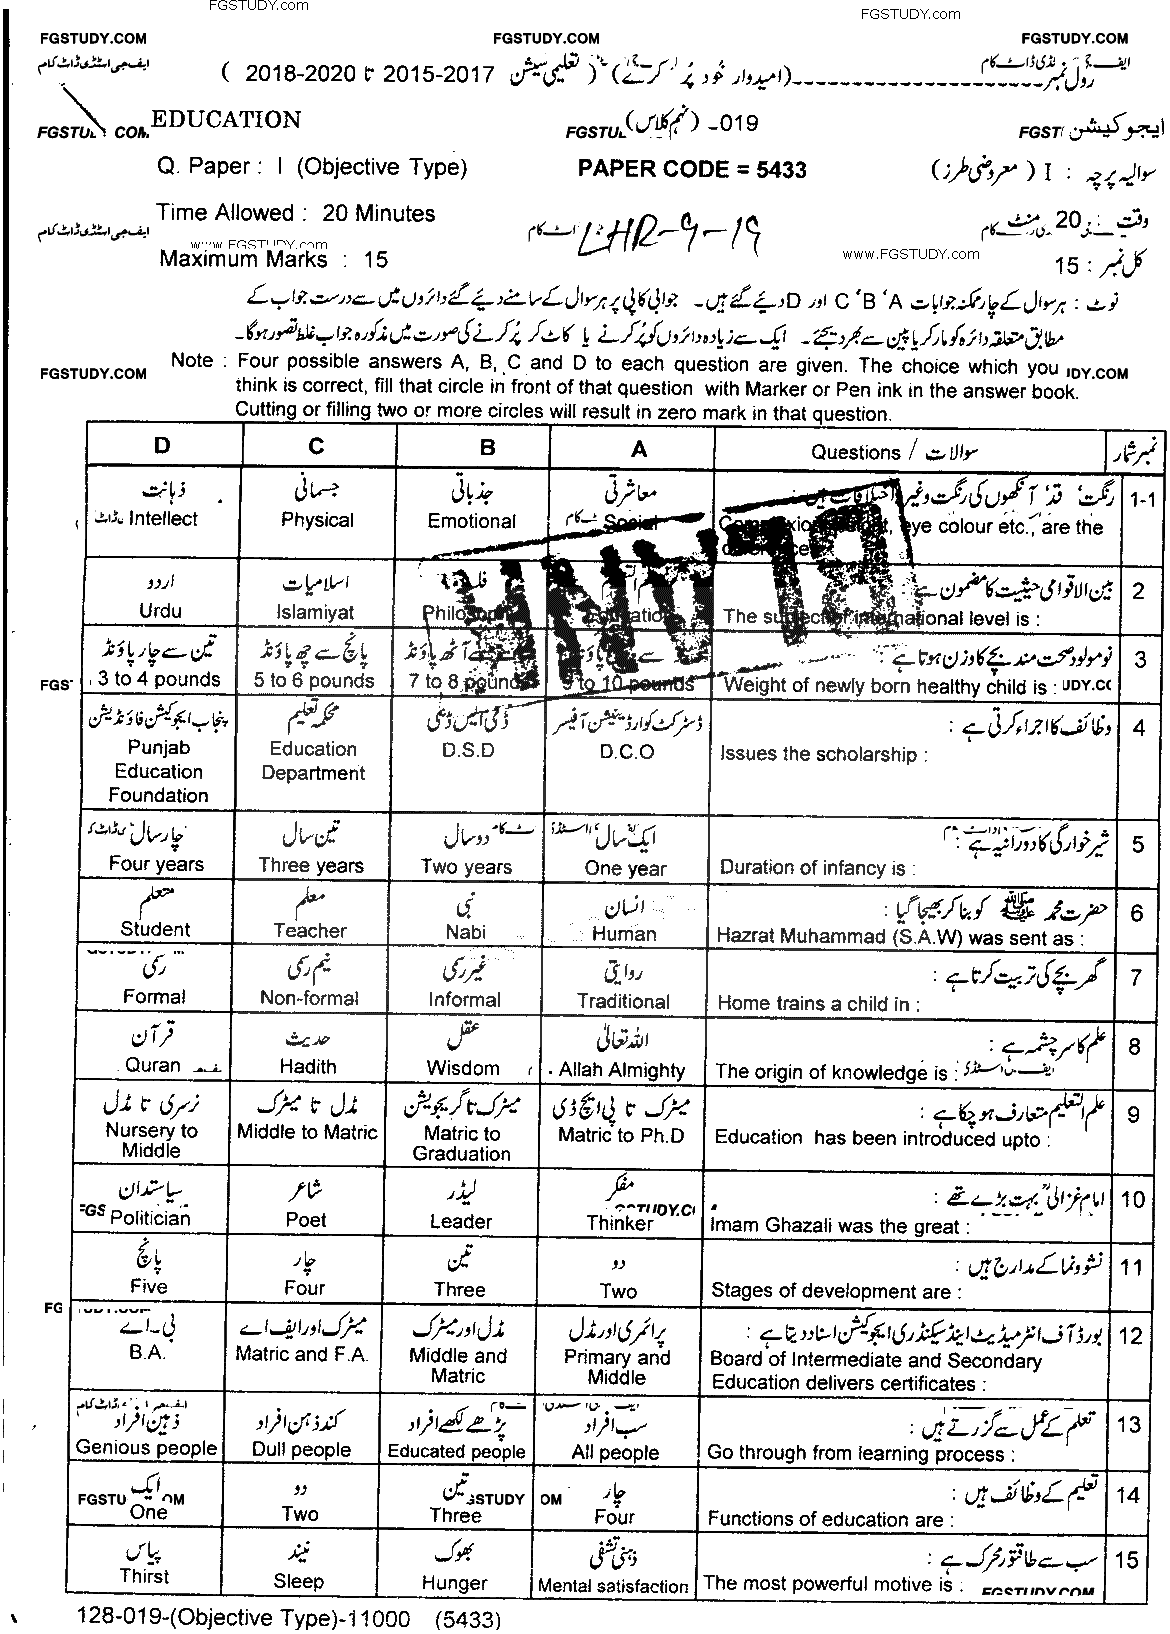 FGSTUDY.COM FGSTUDY.COM
FGSTUDY.COM FGSTUDY.COM FGSTUDY.COM
ایف جی اسٹڈی ڈاٹ کام
رول نمبر (امیدوار خود پُر کرے) (تعلیمی سیشن 2015-2017 تا 2018-2020)
EDUCATION 019- (نہم کلاس) ایجوکیشن
Q. Paper : I (Objective Type) PAPER CODE = 5433 سوالیہ پرچہ : I (معروضی طرز)
Time Allowed : 20 Minutes LHR-9-19 وقت : 20 منٹ
ایف جی اسٹڈی ڈاٹ کام
www.FGSTUDY.com www.FGSTUDY.com
Maximum Marks : 15 کل نمبر : 15
نوٹ : ہر سوال کے چار ممکنہ جوابات A ، B ، C اور D دیئے گئے ہیں۔ جوابی کاپی پر ہر سوال کے سامنے دیئے گئے دائروں میں سے درست جواب کے
مطابق متعلقہ دائرہ کو مارکر یا پین سے بھر دیجئے۔ ایک سے زیادہ دائروں کو پُر کرنے یا کاٹ کر پُر کرنے کی صورت میں مذکورہ جواب غلط تصور ہوگا۔
FGSTUDY.COM
Note : Four possible answers A, B, C and D to each question are given. The choice which you
think is correct, fill that circle in front of that question with Marker or Pen ink in the answer book.
Cutting or filling two or more circles will result in zero mark in that question.
D C B A Questions / سوالات نمبر شمار
ذہانت جسمانی جذباتی معاشرتی رنگت، قد، آنکھوں کی رنگت وغیرہ اختلافات ہیں : 1-1
Intellect Physical Emotional Social eye colour etc., are the
اردو اسلامیات بین الاقوامی حیثیت کا مضمون ہے : 2
Urdu Islamiyat Philosophy Education The subject of international level is :
تین سے چار پاؤنڈ پانچ سے چھ پاؤنڈ آٹھ پاؤنڈ نومولود صحت مند بچے کا وزن ہوتا ہے : 3
3 to 4 pounds 5 to 6 pounds 7 to 8 pounds 9 to 10 pounds Weight of newly born healthy child is :
پنجاب ایجوکیشن فاؤنڈیشن محکمہ تعلیم ڈی ایس ڈی ڈسٹرکٹ کوارڈینیشن آفیسر وظائف کا اجراء کرتی ہے : 4
Punjab Education D.S.D D.C.O Issues the scholarship :
Education Department
Foundation
چار سال تین سال دو سال ایک سال شیر خوارگی کا دورانیہ ہے : 5
Four years Three years Two years One year Duration of infancy is :
متعلم معلم نبی انسان حضرت محمد ﷺ کو بنا کر بھیجا گیا : 6
Student Teacher Nabi Human Hazrat Muhammad (S.A.W) was sent as :
رسمی نیم رسمی غیر رسمی روایتی گھر بچے کی تربیت کرتا ہے : 7
Formal Non-formal Informal Traditional Home trains a child in :
قرآن حدیث عقل اللہ تعالیٰ علم کا سرچشمہ ہے : 8
Quran Hadith Wisdom Allah Almighty The origin of knowledge is :
نرسری تا مڈل مڈل تا میٹرک میٹرک تا گریجویشن میٹرک تا پی ایچ ڈی علم التعلیم متعارف ہو چکا ہے : 9
Nursery to Middle to Matric Matric to Matric to Ph.D Education has been introduced upto :
Middle Graduation
سیاستدان شاعر لیڈر مفکر امام غزالیؒ بہت بڑے تھے : 10
Politician Poet Leader Thinker Imam Ghazali was the great :
پانچ چار تین دو نشوونما کے مدارج ہیں : 11
Five Four Three Two Stages of development are :
بی۔اے میٹرک اور ایف اے مڈل اور میٹرک پرائمری اور مڈل بورڈ آف انٹرمیڈیٹ اینڈ سیکنڈری ایجوکیشن اسناد دیتا ہے : 12
B.A. Matric and F.A. Middle and Primary and Board of Intermediate and Secondary
Matric Middle Education delivers certificates :
ذہین افراد کند ذہن افراد پڑھے لکھے افراد سب افراد تعلم کے عمل سے گزرتے ہیں : 13
Genious people Dull people Educated people All people Go through from learning process :
ایک دو تین چار تعلیم کے وظائف ہیں : 14
One Two Three Four Functions of education are :
پیاس نیند بھوک ذہنی تشفی سب سے طاقتور محرک ہے : 15
Thirst Sleep Hunger Mental satisfaction The most powerful motive is : FGSTUDY.COM
128-019-(Objective Type)-11000 (5433)